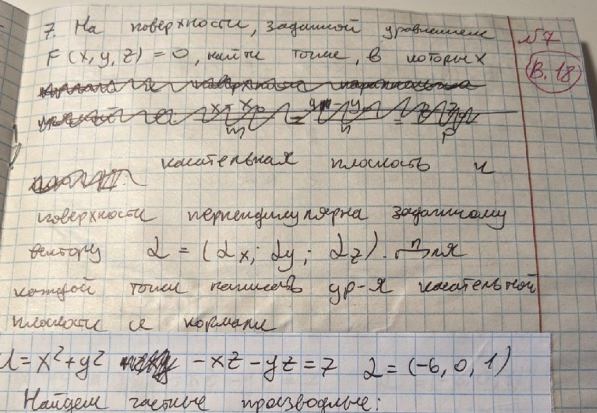 7. На поверхности, заданной уравнением
F(x, y, z) = 0, найти точки, в которых
N7
В. 18
касательная плоскость к
поверхности перпендикулярна заданному
вектору α = (αx; αy; αz). Для
каждой точки написать ур-я касательной
плоскости и нормали
U = x² + y² - xz - yz = 7 α = (-6, 0, 1)
Найдем частные производные: